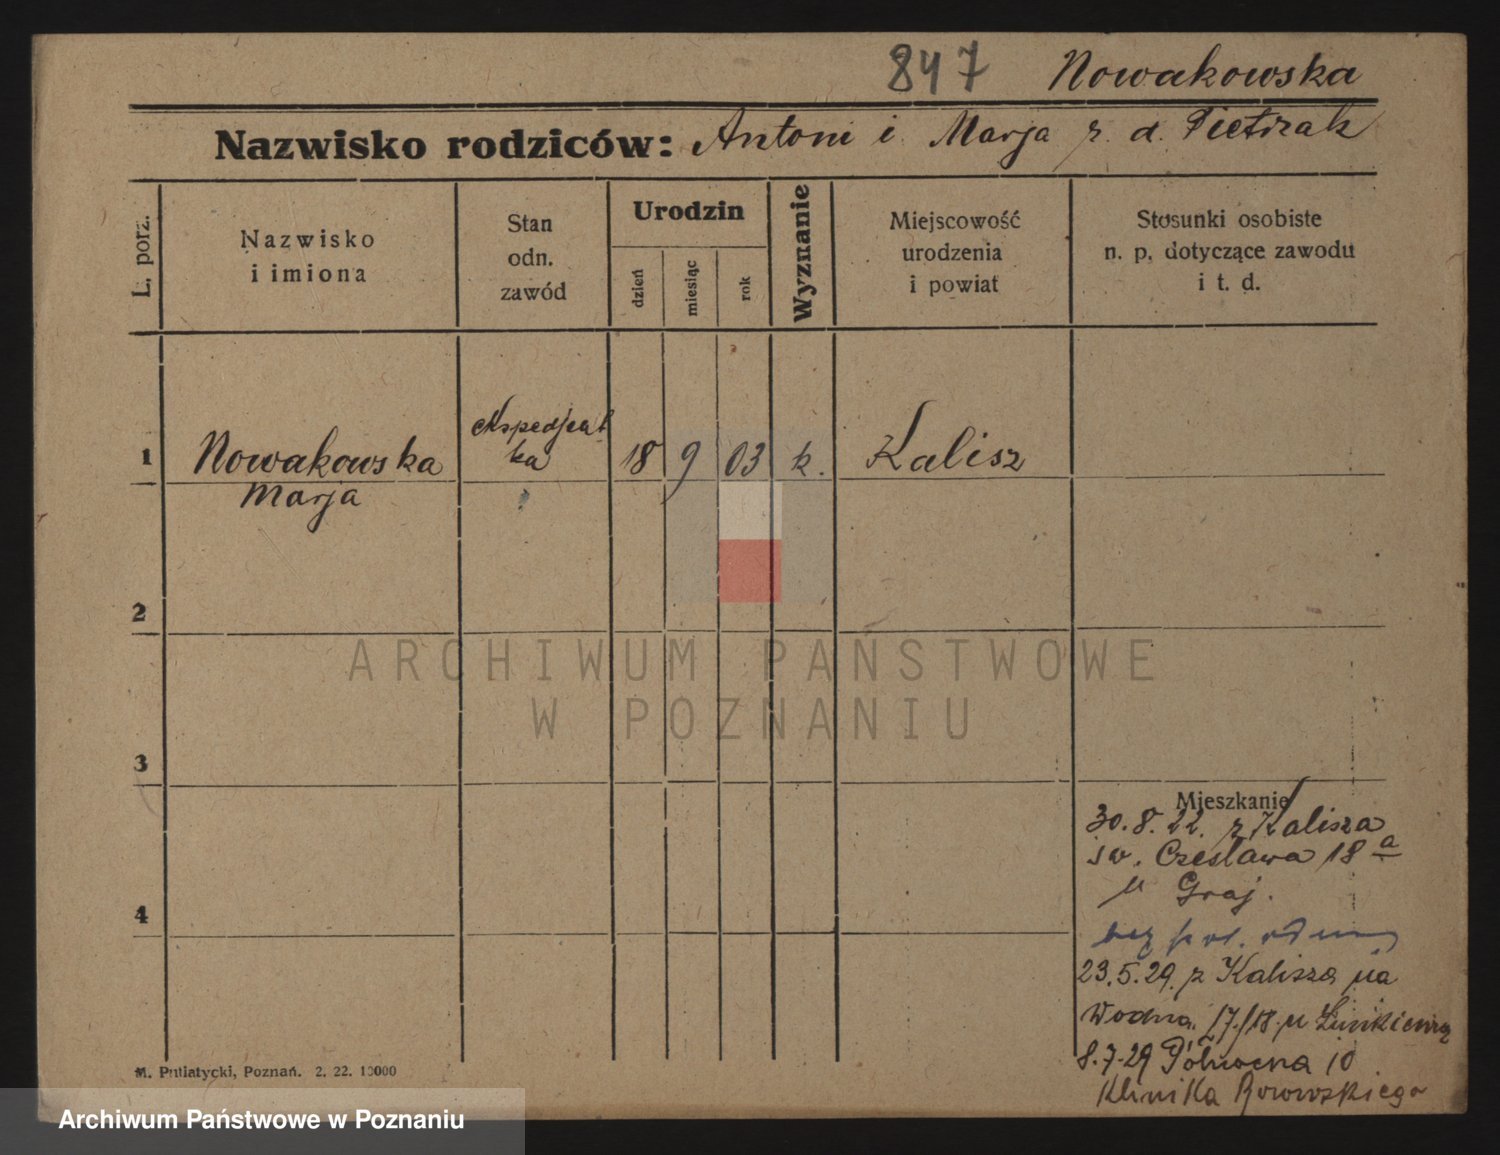 847 Nowakowska
Nazwisko rodziców: Antoni i Marja z. d. Pietrzak
L. porz.
Nazwisko
i imiona
Stan
odn.
zawód
Urodzin
dzień
miesiąc
rok
Wyznanie
Miejscowość
urodzenia
i powiat
Stosunki osobiste
n. p. dotyczące zawodu
i t. d.
1
Nowakowska
Marja
ekspedjent
ka
18 9 03 k. Kalisz
2
3
4
Mieszkanie
30. 8. 22. z Kalisza
św. Czesława 18 a
u Graj.
bez
23. 5. 29. z Kalisza na
Wodną 17/18 u
8. 7. 29 Północna 10
Klinika
M. Putiatycki, Poznań. 2. 22. 10000
ARCHIWUM PAŃSTWOWE
W POZNANIU
Archiwum Państwowe w Poznaniu